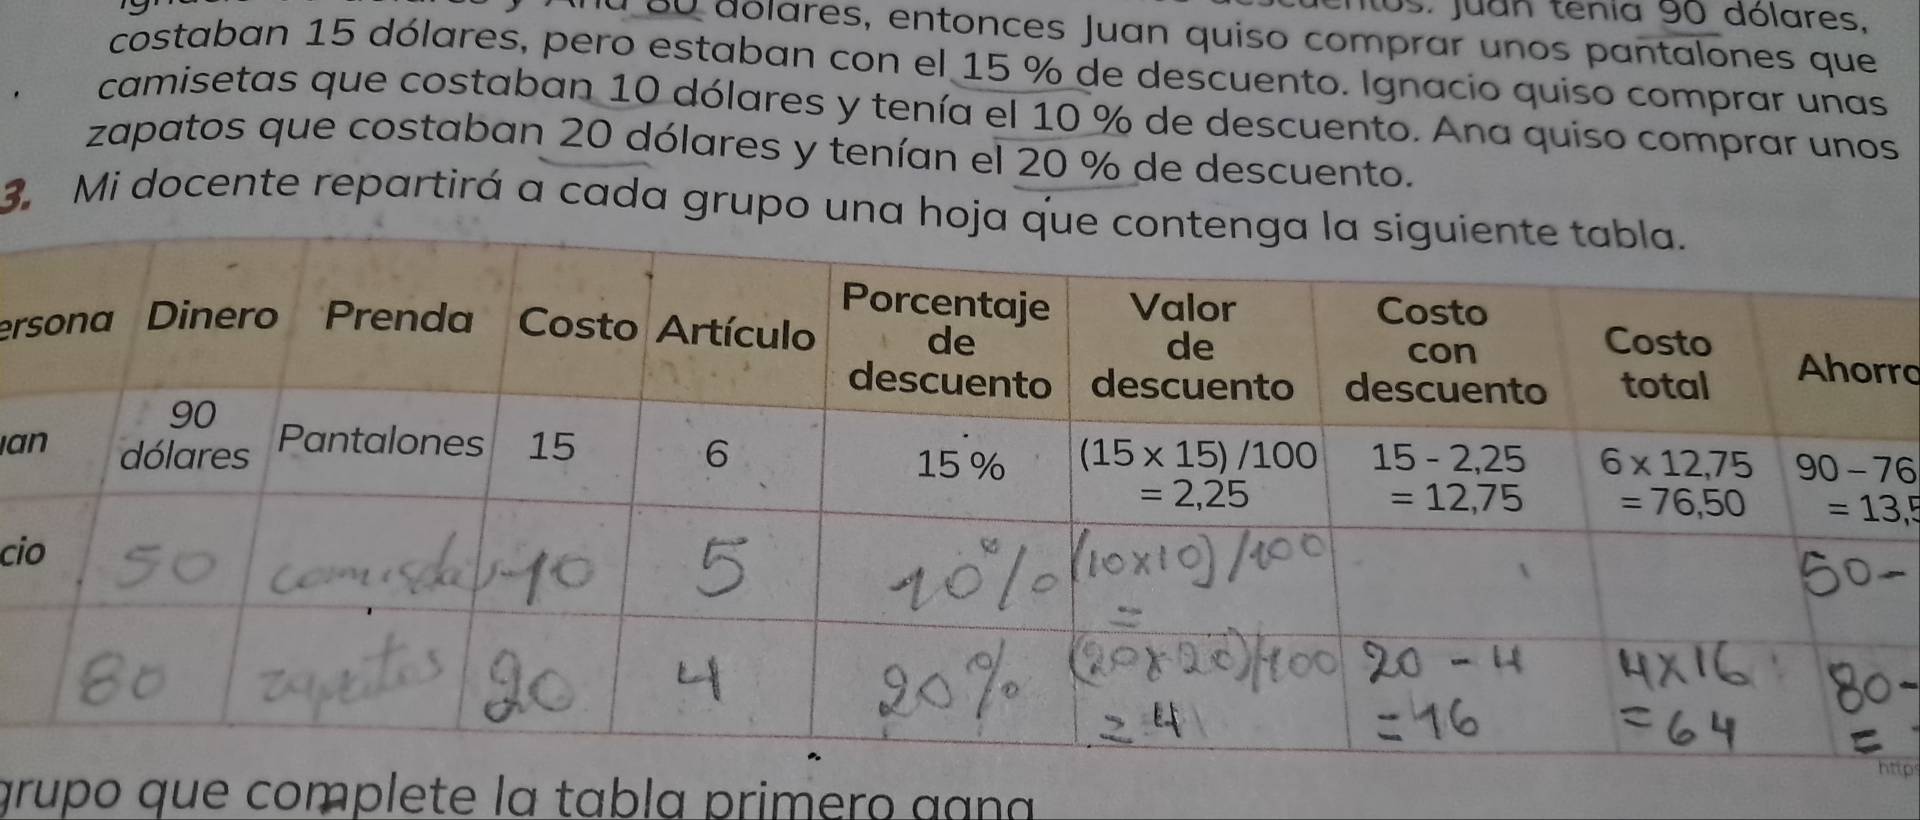 80 dólares, entonces Juan quiso comprar unos pantalones que
Juan tenía 90 dólares,
costaban 15 dólares, pero estaban con el 15 % de descuento. Ignacio quiso comprar unas
camisetas que costaban 10 dólares y tenía el 10 % de descuento. Ana quiso comprar unos
zapatos que costaban 20 dólares y tenían el 20 % de descuento.
3. Mi docente repartirá a cada grupo una hoja que contenga la siguiente tabla.
ersona Dinero Prenda Costo Artículo Porcentaje de descuento Valor de descuento Costo con descuento Costo total Ahorro
uan 90 dólares Pantalones 15 6 15 % (15 x 15) /100 = 2,25 15 - 2,25 = 12,75 6 x 12,75 = 76,50 90 – 76 = 13,5
cio 50 10 5 10% (10x10)/100 = 50-
80 zapatos 20 4 20% (20x20)/100 = 4 20 - 4 = 16 4x16 = 64 80- =
https
grupo que complete la tabla primero gana